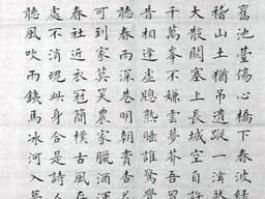 舊池臺傷心橋下春波綠
稽山土猶吊遺蹤一泫
大散關塞上長城空自許
千萬峯不嫌雲夢芥吾
昔相逢處熟睡誰驚覺
聽春雨深巷明朝賣杏
可到家莫笑農家臘酒
春社近衣冠簡樸古風存
處不消此身合是詩人
聽風吹雨鐵馬冰河入